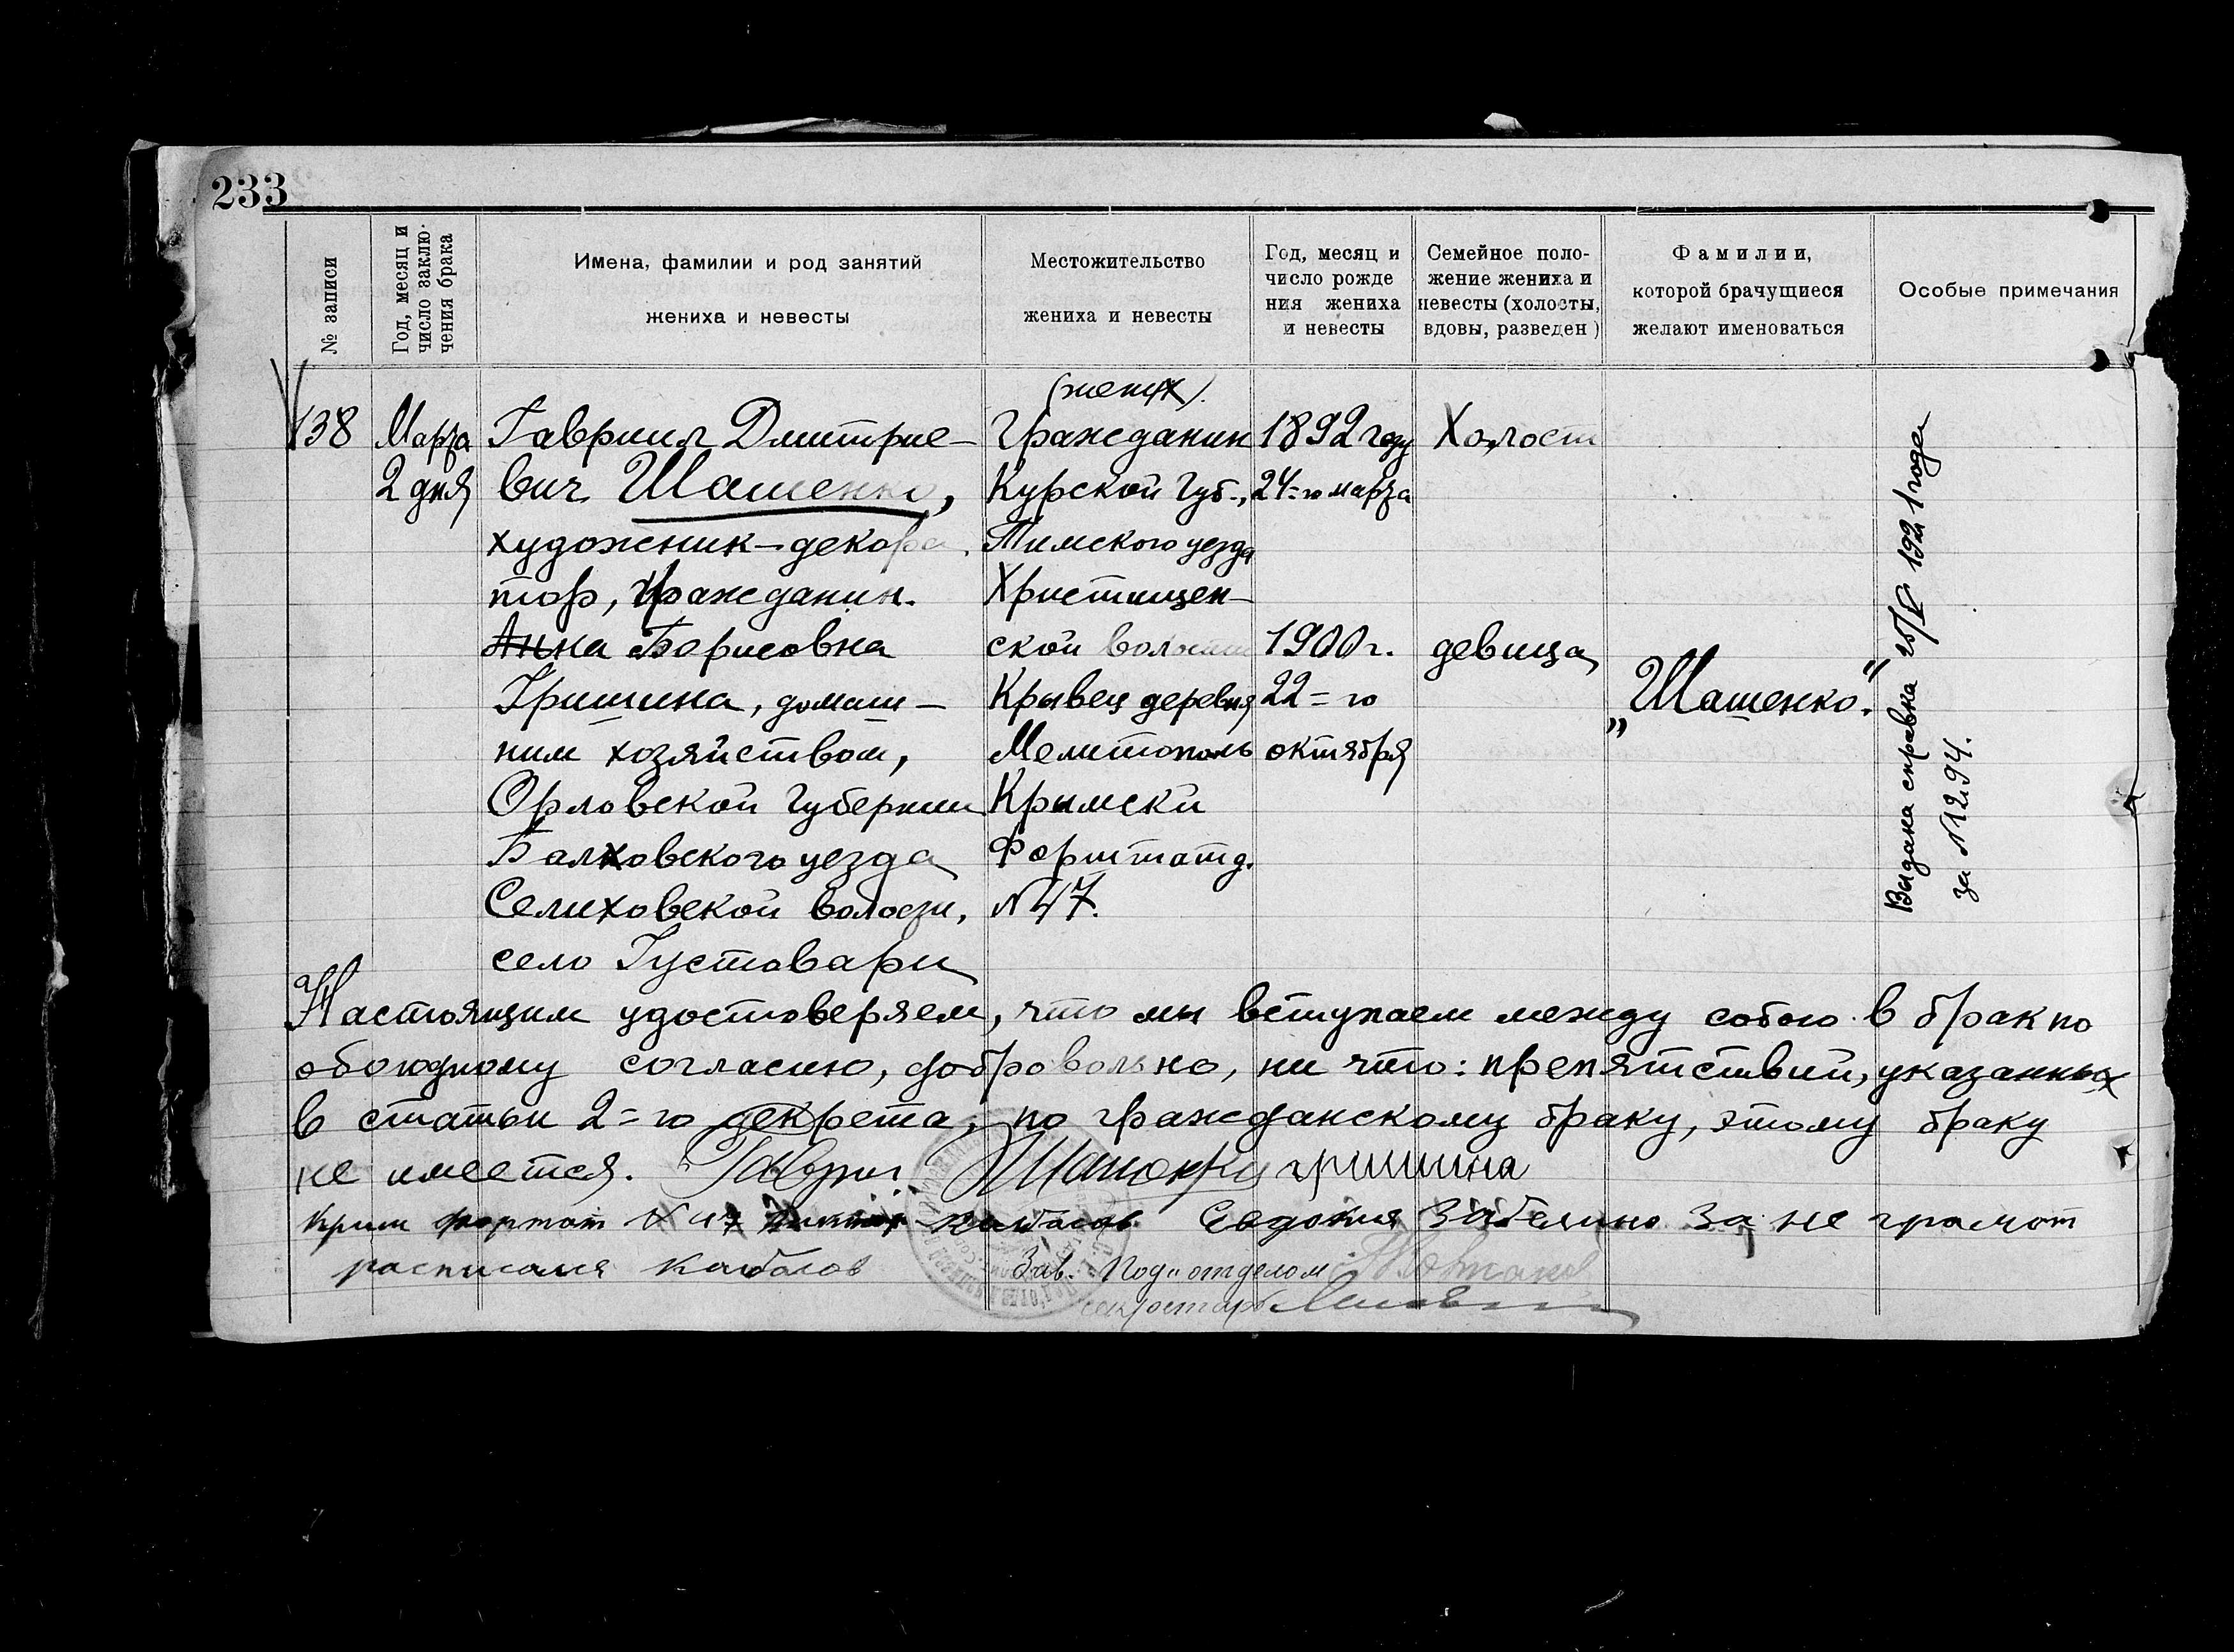 233
№ записи
Год, месяц и
число заклю-
чения брака
Имена, фамилии и род занятий
жениха и невесты
Местожительство
жениха и невесты
Год, месяц и
число рожде
ния жениха
и невесты
Семейное поло-
жение жениха и
невесты (холосты,
вдовы, разведен)
Фамилии,
которой брачущиеся
желают именоваться
Особые примечания
138
Марта
2 дня
Гавриил Дмитрие-
вич Шашенко,
художник-декора
тор, гражданин.
Анна Борисовна
Гришина, домаш-
ним хозяйством,
Орловской губернии
Балховского уезда
Селиховской волости,
село Густовари
(жених).
Гражданин
Курской губ.,
Тимского уезда
Христищен-
ской волости
Кривец деревня
Мелитополь
Крымски
Форштат д.
№ 47.
1892 году
24=го марта
1900 г.
22=го
октября
Холост
девица
„Шашенко."
Выдана справка 25/V 1921 года
за № 1294.
Настоящим удостоверяем, что мы вступаем между собою в брак по
обоюдному согласию, добровольно, ни что: препятствий, указанных
в статьи 2=го декрета, по гражданскому браку, этому браку
не имеется. Гаври Шашенко гришина
Крим фортат № 47 кабасов Евдокия Забелино За не грамот
расписался Кабасов
Зав. Под"отделом
секретарь